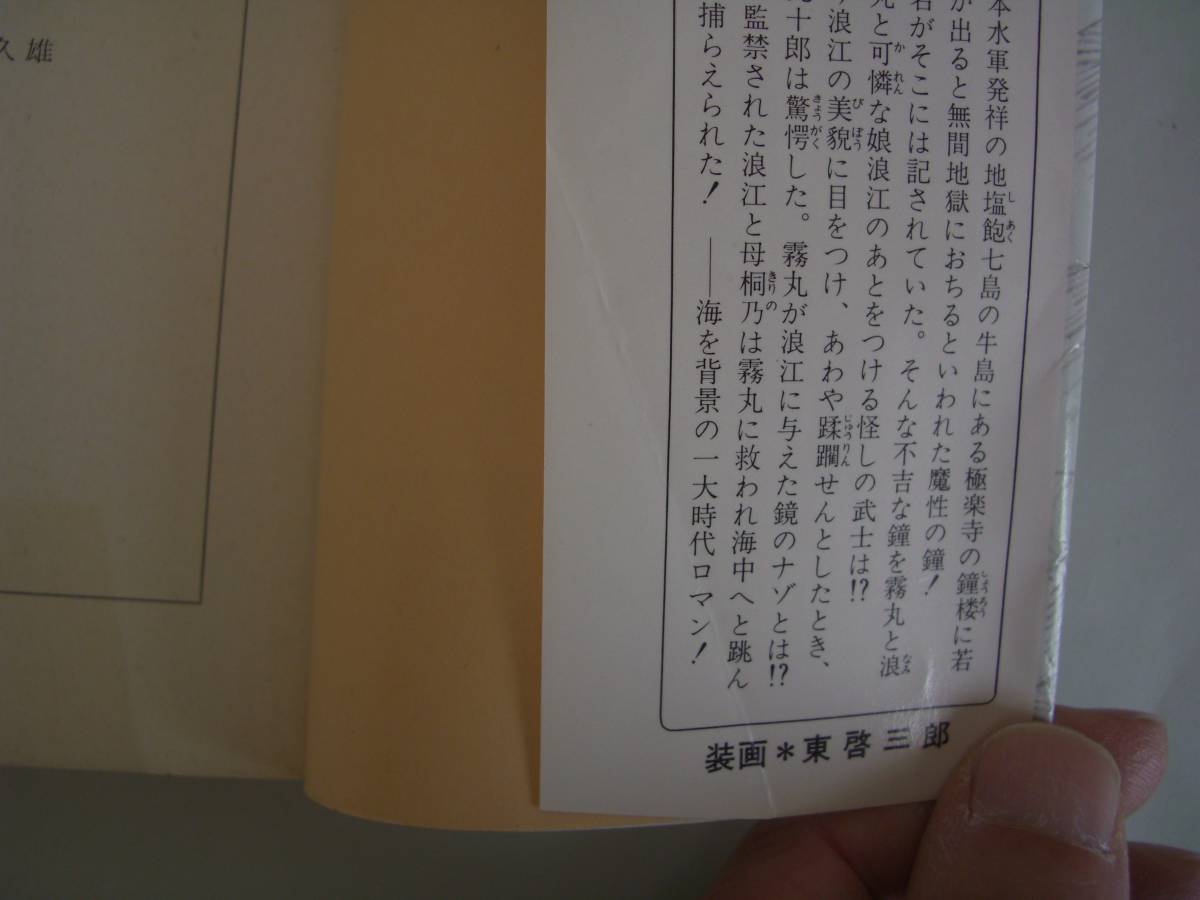 本水軍発祥の地塩飽七島の牛島にある極楽寺の鐘楼に若
が出ると無間地獄におちるといわれた魔性の鐘！
がそこには記されていた。そんな不吉な鐘を霧丸と浪
丸と可憐な娘浪江のあとをつける怪しの武士は!?
浪江の美貌に目をつけ、あわや蹂躙せんとしたとき、
十郎は驚愕した。霧丸が浪江に与えた鏡のナゾとは!?
監禁された浪江と母桐乃は霧丸に救われ海中へと跳ん
捕らえられた！　――海を背景の一大時代ロマン！
装画＊東啓三郎
久雄